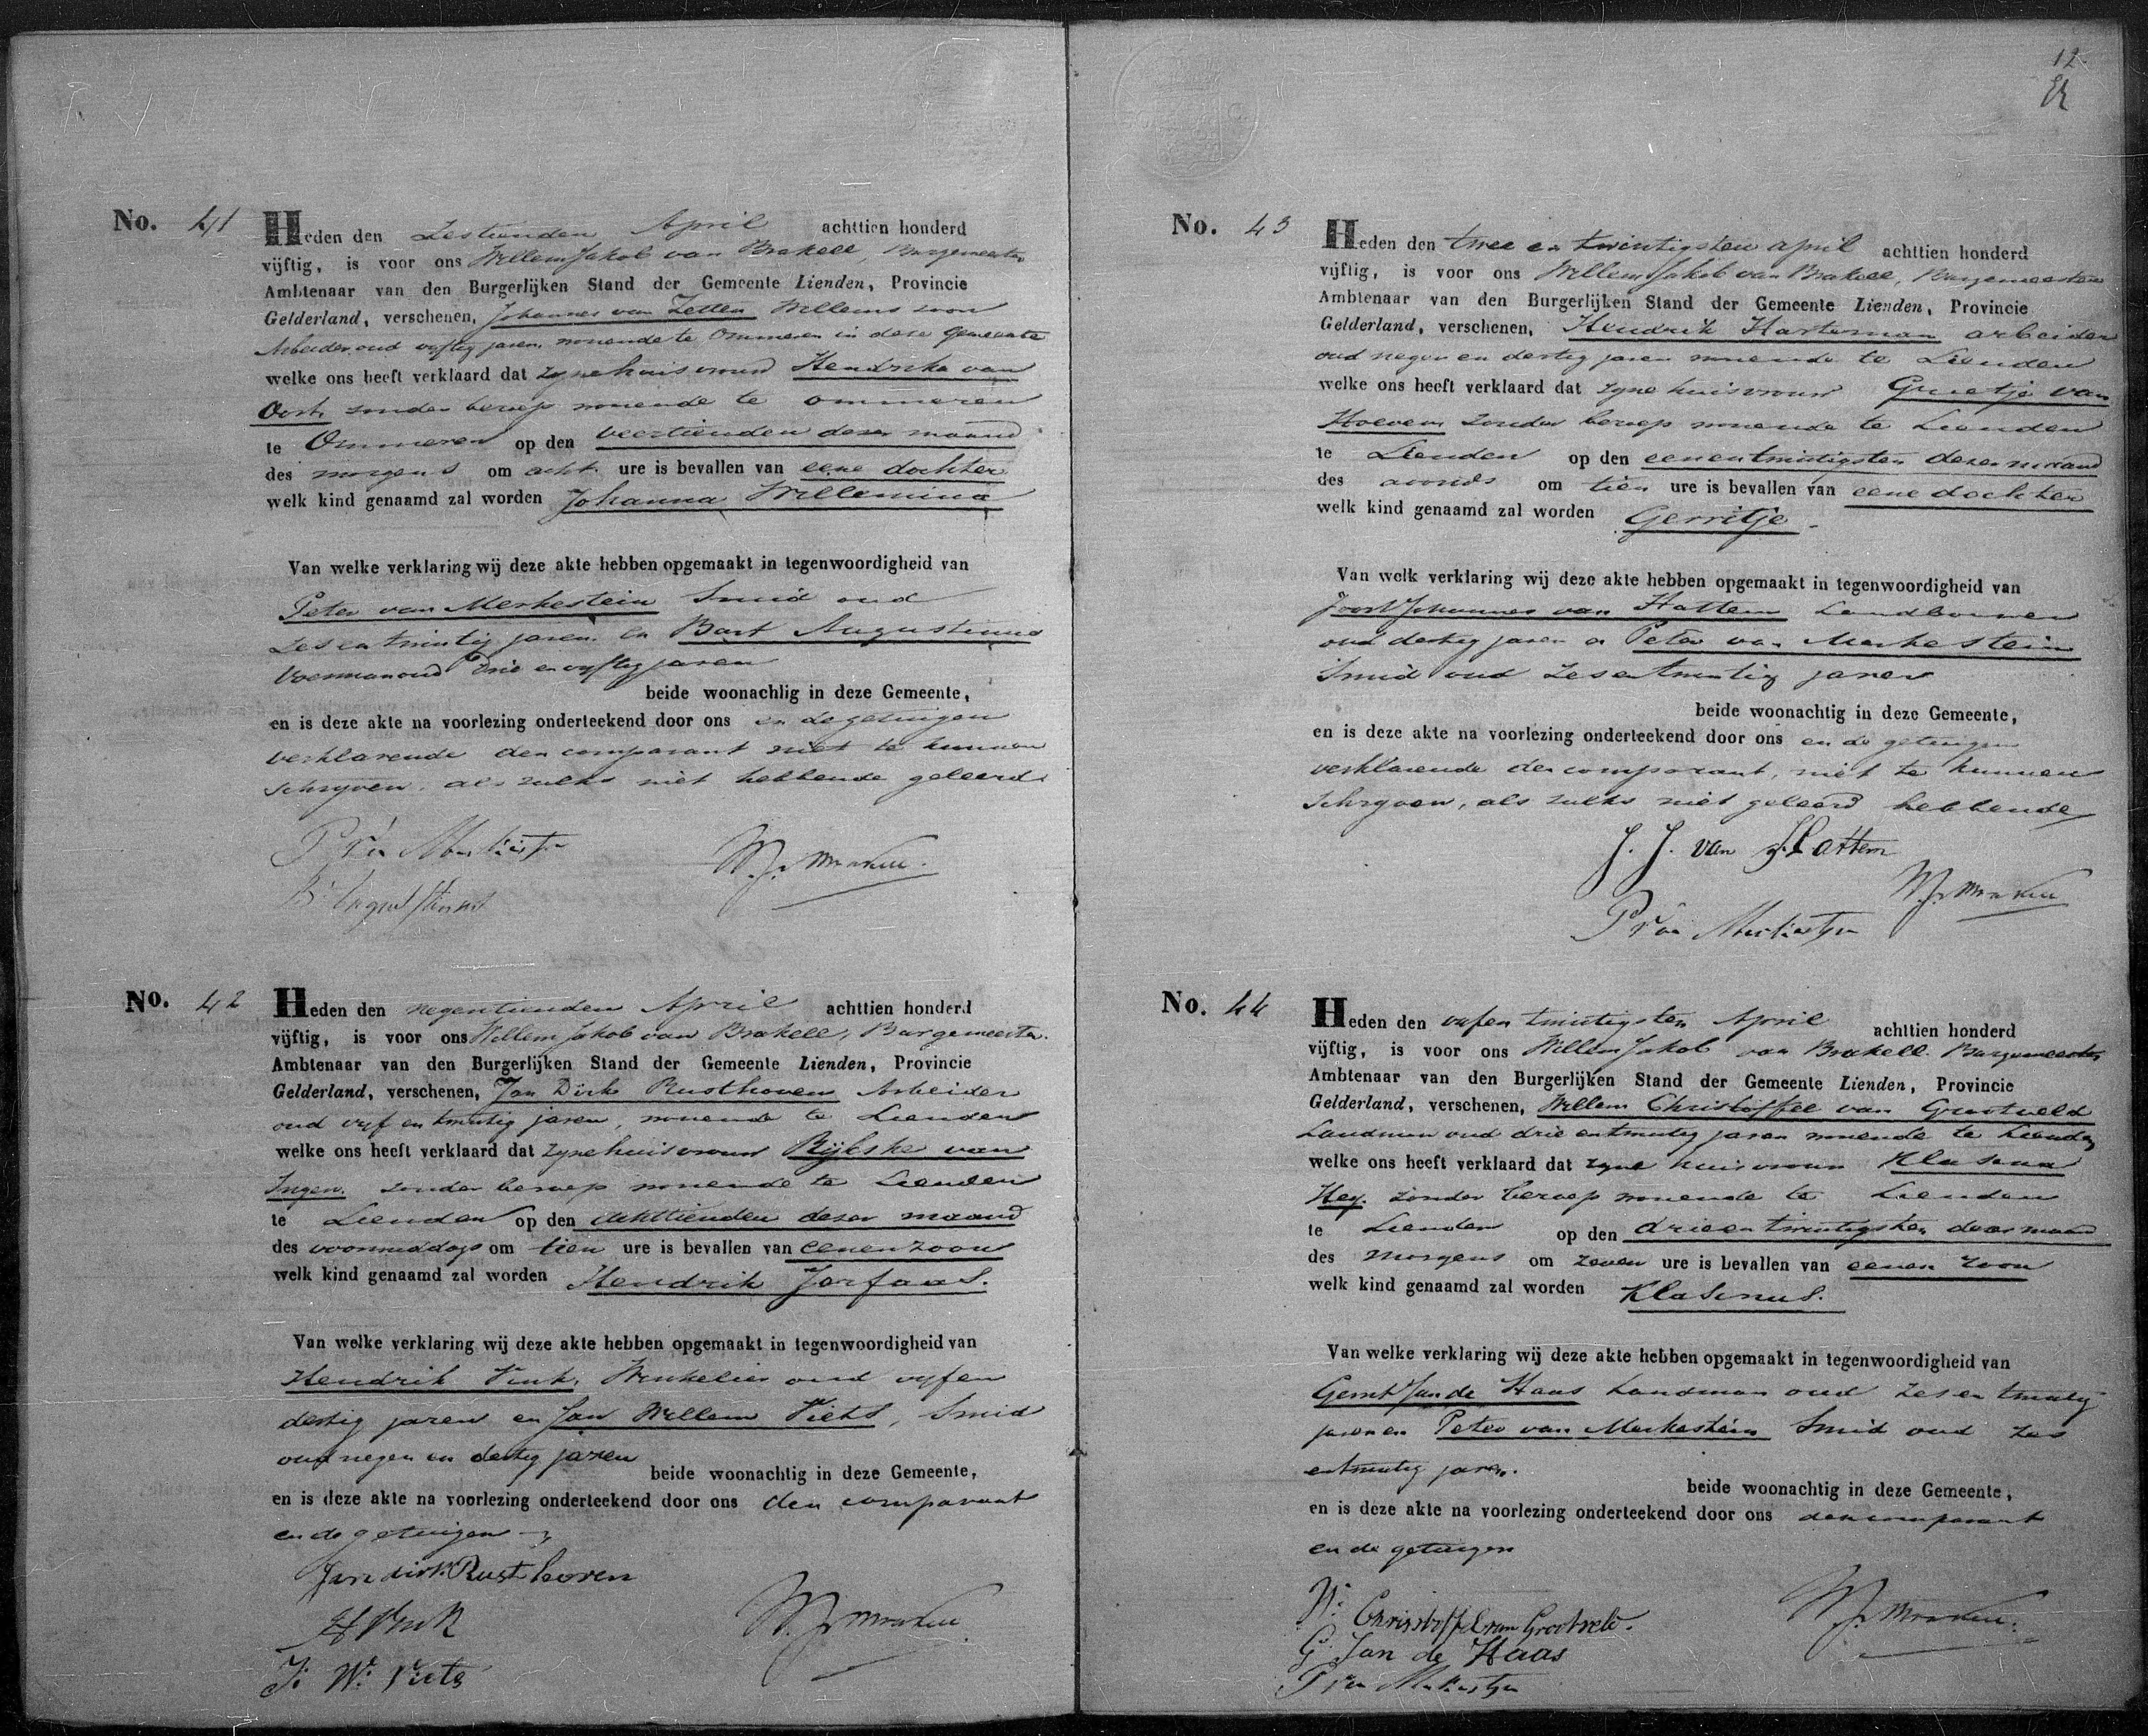 No. 41
Heden den Zestienden April achttien honderd
vijftig, is voor ons Willem Jakob van Brakell, Burgemeester
Ambtenaar van den Burgerlijken Stand der Gemeente Lienden, Provincie
Gelderland, verschenen, Johannes van Zetten Willems zoon
Arbeider oud vyftig jaren, wonende te Ommeren in deze Gemeente
welke ons heeft verklaard dat zyne huisvrouw Hendrika van
Oort, zonder beroep wonende te ommeren
te Ommeren op den veertienden dezer maand
des morgens om acht ure is bevallen van eene dochter
welk kind genaamd zal worden Johanna Willemina
Van welke verklaring wij deze akte hebben opgemaakt in tegenwoordigheid van
Peter van Merkestein Smid oud
zes en twintig jaren en Bart Augustinus
Voerman oud drie en vyftig jaren
beide woonachtig in deze Gemeente,
en is deze akte na voorlezing onderteekend door ons en de getuigen
verklarende den comparant niet te kunnen
schryven, als zulks niet hebbende geleerd
P van Merkestyn
W. J. v Brakell.
B. Augustinus
No. 42
Heden den negentienden April achttien honderd
vijftig, is voor ons Willem Jakob van Brakell, Burgemeester.
Ambtenaar van den Burgerlijken Stand der Gemeente Lienden, Provincie
Gelderland, verschenen, Jan Dirk Rusthoven Arbeider
oud vyf en twintig jaren, wonende te Lienden
welke ons heeft verklaard dat zyne huisvrouw Rijkske van
Ingen. zonder beroep wonende te Lienden
te Lienden op den achttienden dezer maand
des voormiddags om tien ure is bevallen van eenen zoon
welk kind genaamd zal worden Hendrik Jorfaas.
Van welke verklaring wij deze akte hebben opgemaakt in tegenwoordigheid van
Hendrik Vink, Winkelier oud vyf en
dertig jaren en Jan Willem Viets, Smid
oud negen en dertig jaren
beide woonachtig in deze Gemeente,
en is deze akte na voorlezing onderteekend door ons den comparant
en de getuigen
Jan dirk Rusthoven
H Vink
W. J. v Brakell.
J: W: Viets
12
No. 43
Heden den twee en twintigsten april achttien honderd
vijftig, is voor ons Willem Jakob van Brakell, Burgemeester
Ambtenaar van den Burgerlijken Stand der Gemeente Lienden, Provincie
Gelderland, verschenen, Hendrik Hartman arbeider
oud negen en dertig jaren wonende te Lienden
welke ons heeft verklaard dat zyne huisvrouw Grietje van
Hoeven zonder beroep wonende te Lienden
te Lienden op den eenentwintigsten dezer maand
des avonds om tien ure is bevallen van eene dochter
welk kind genaamd zal worden Gerritje.
Van welk verklaring wij deze akte hebben opgemaakt in tegenwoordigheid van
Joost Johannes van Hattem Landbouwer
oud dertig jaren en Peter van Merkestein
Smid oud zesentwintig jaren
beide woonachtig in deze Gemeente,
en is deze akte na voorlezing onderteekend door ons en de getuigen
verklarende den comparant, niet te kunnen
schryven, als zulks niet geleerd hebbende
J. J. van Hattem
W. J. v Brakell
P van Merkestyn
No. 44
Heden den vyfen twintigsten April achttien honderd
vijftig, is voor ons Willem Jakob van Brakell. Burgemeester
Ambtenaar van den Burgerlijken Stand der Gemeente Lienden, Provincie
Gelderland, verschenen, Willem Christoffel van Grootveld
Landman oud drie entwintig jaren wonende te Lienden
welke ons heeft verklaard dat zyne huisvrouw Klasina
Hey. zonder beroep wonende te Lienden
te Lienden op den drieentwintigsten dezer maand
des morgens om zeven ure is bevallen van eenen zoon
welk kind genaamd zal worden Klasinus.
Van welke verklaring wij deze akte hebben opgemaakt in tegenwoordigheid van
Gerrit Jan de Haas Landman oud zes en twintig
jaren en Peter van Merkestein Smid oud zes
entwintig jaren.
beide woonachtig in deze Gemeente,
en is deze akte na voorlezing onderteekend door ons den comparant
en de getuigen
W: Christoffel van Grootveld.
W. J. v Brakell.
G: Jan de Haas
P van Merkestyn